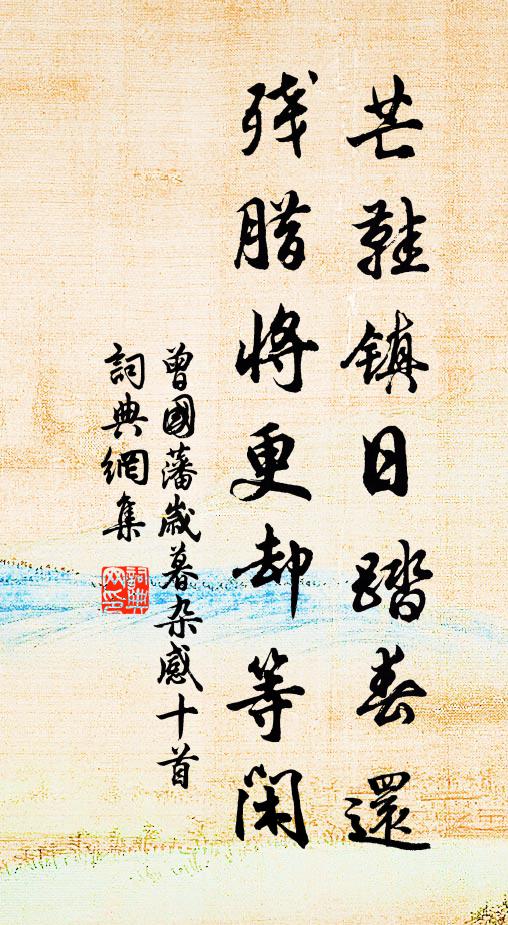 芒鞋镇日踏春還
残腊将更却等闲
曾國藩歲暮杂感十首
詞典網集